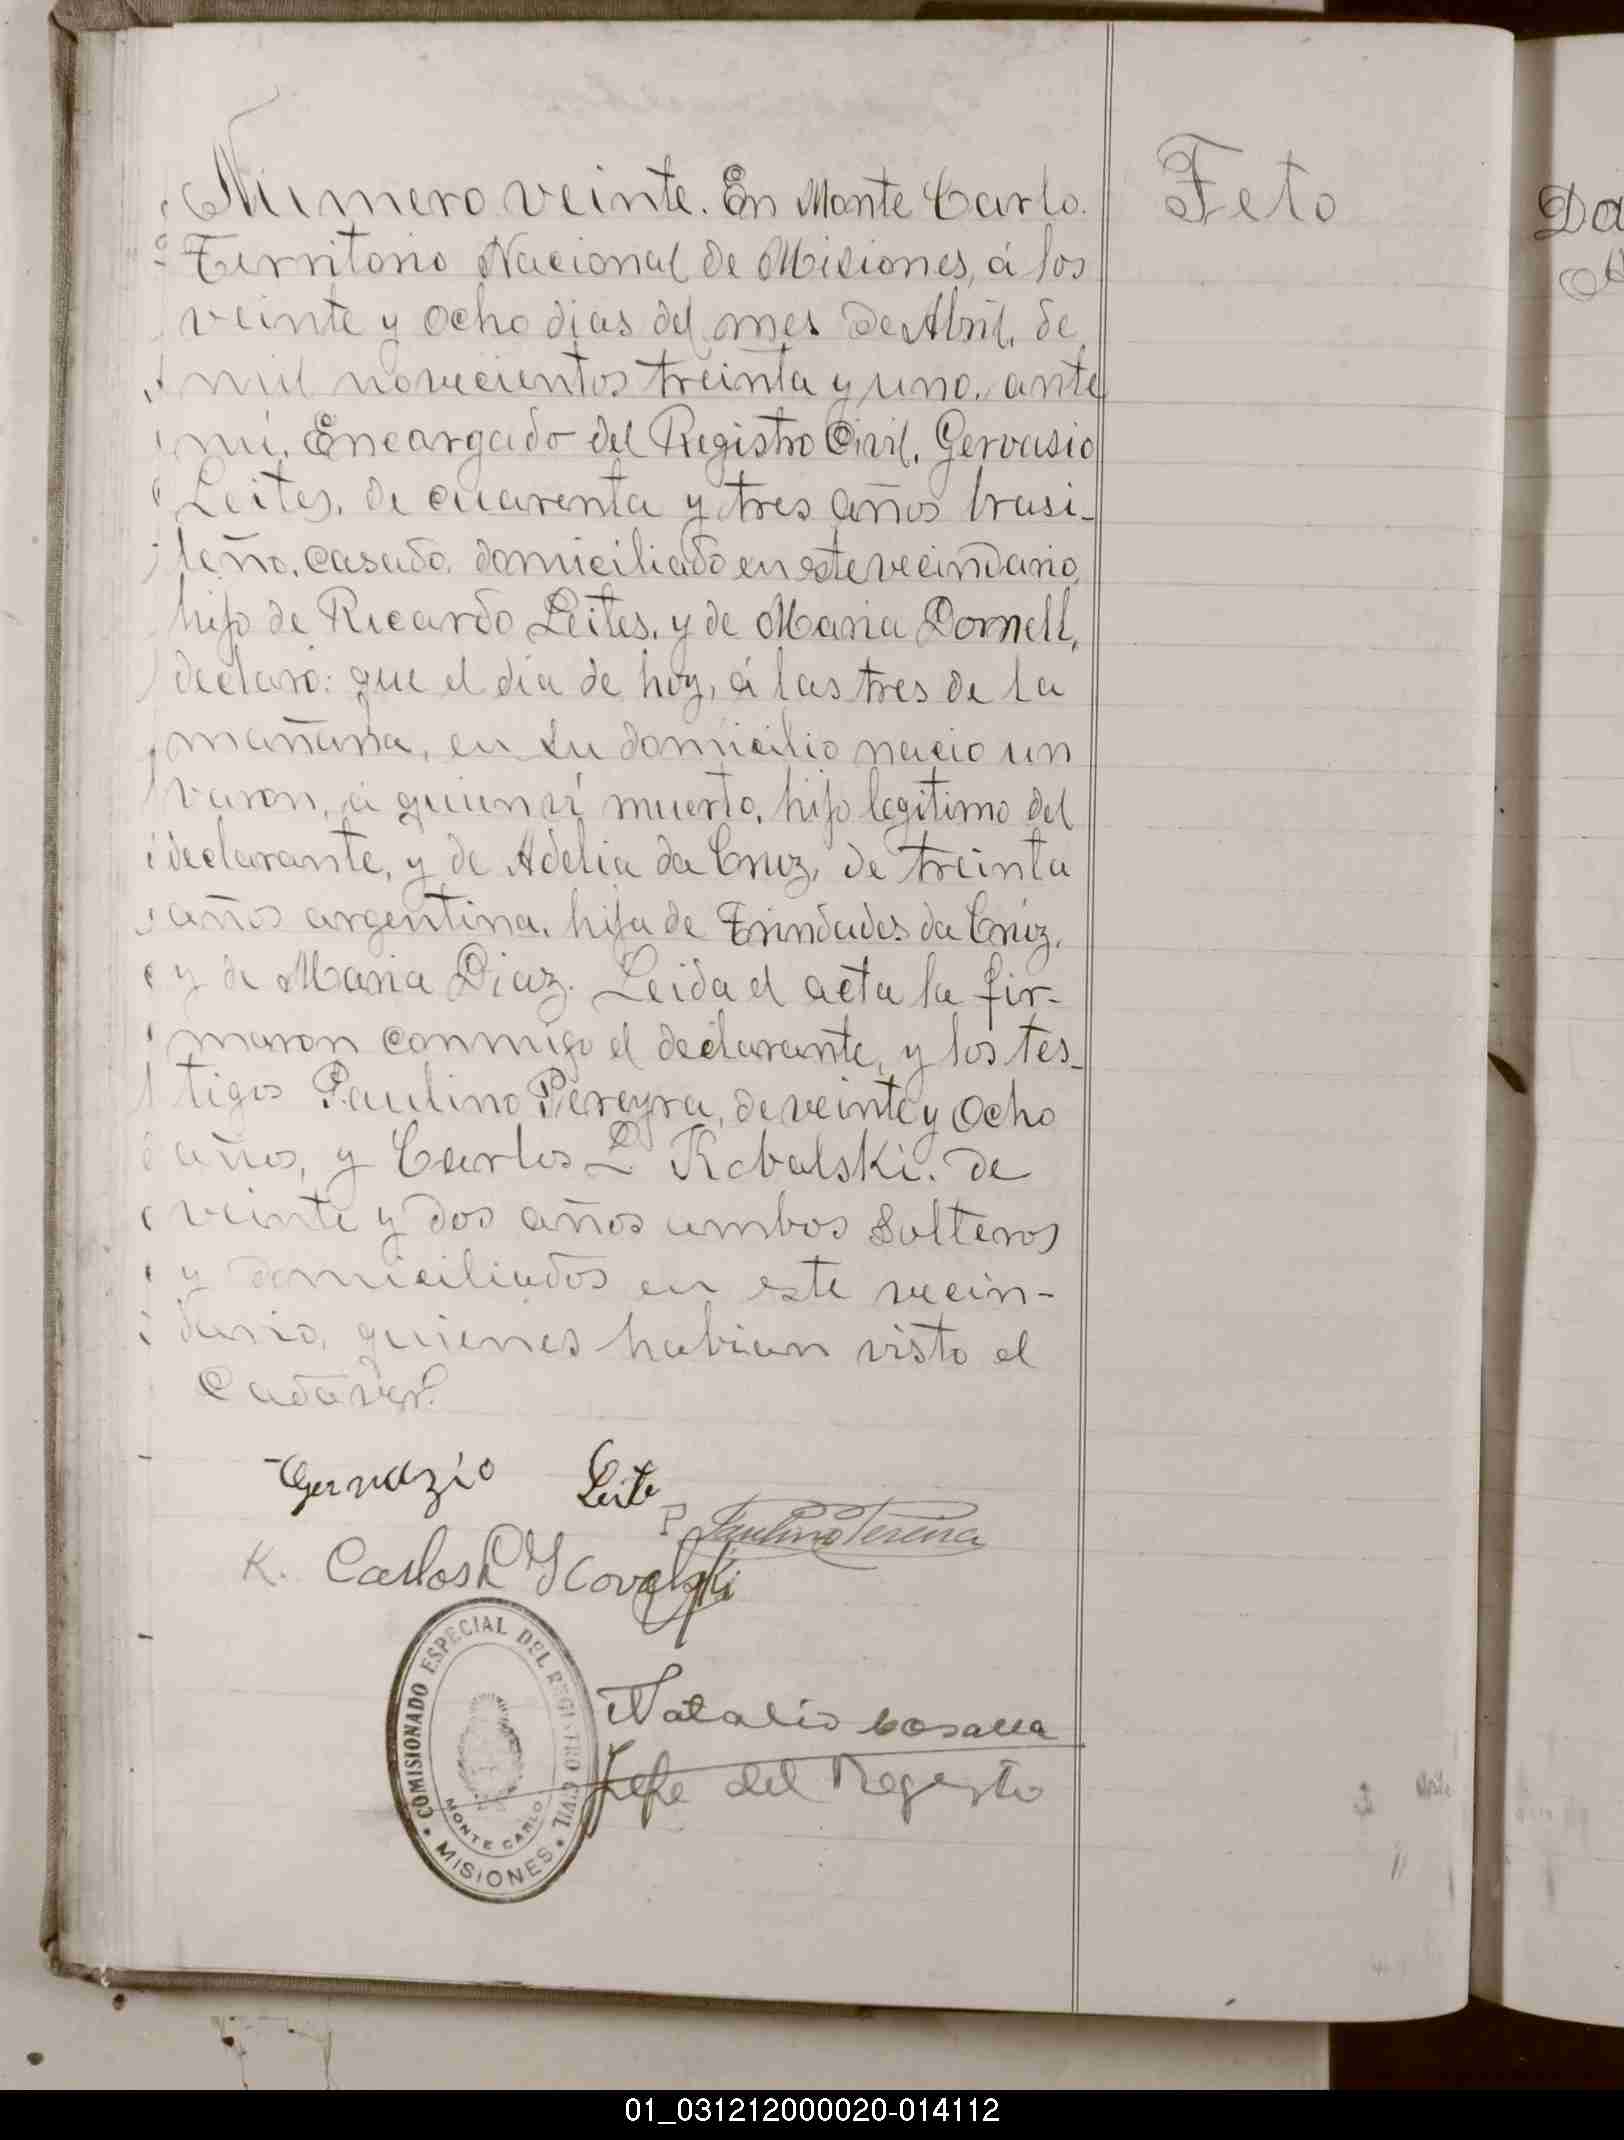 Numero veinte. En Monte Carlo.
Territorio Nacional de Misiones, á los
veinte y ocho dias del mes de Abril, de
mil novecientos treinta y uno, ante
mi, Encargado del Registro Civil, Gervasio
Leites, de cuarenta y tres años brasi-
leño, casado, domiciliado en este vecindario,
hijo de Ricardo Leites, y de Maria Dornell,
declaró: que el dia de hoy, á las tres de la
mañana, en su domicilio nacio un
varon, á quien ví muerto, hijo legitimo del
declarante, y de Adelia da Cruz, de treinta
años argentina, hija de Trindades da Cruz,
y de Maria Diaz. Leida el acta la fir-
maron conmigo el declarante, y los tes-
tigos Paulino Pereyra, de veinte y ocho
años, y Carlos L Kobalski, de
veinte y dos años ambos solteros
y domiciliados en este vecin-
dario, quienes habian visto el
cadaver.
Feto
Da
Gervazio Leite
P Paulino Pereira
K. Carlos L Kovalski
COMISIONADO ESPECIAL DEL REGISTRO CIVIL
MONTE CARLO
MISIONES
Natalio
Jefe del Registo
01_031212000020-014112